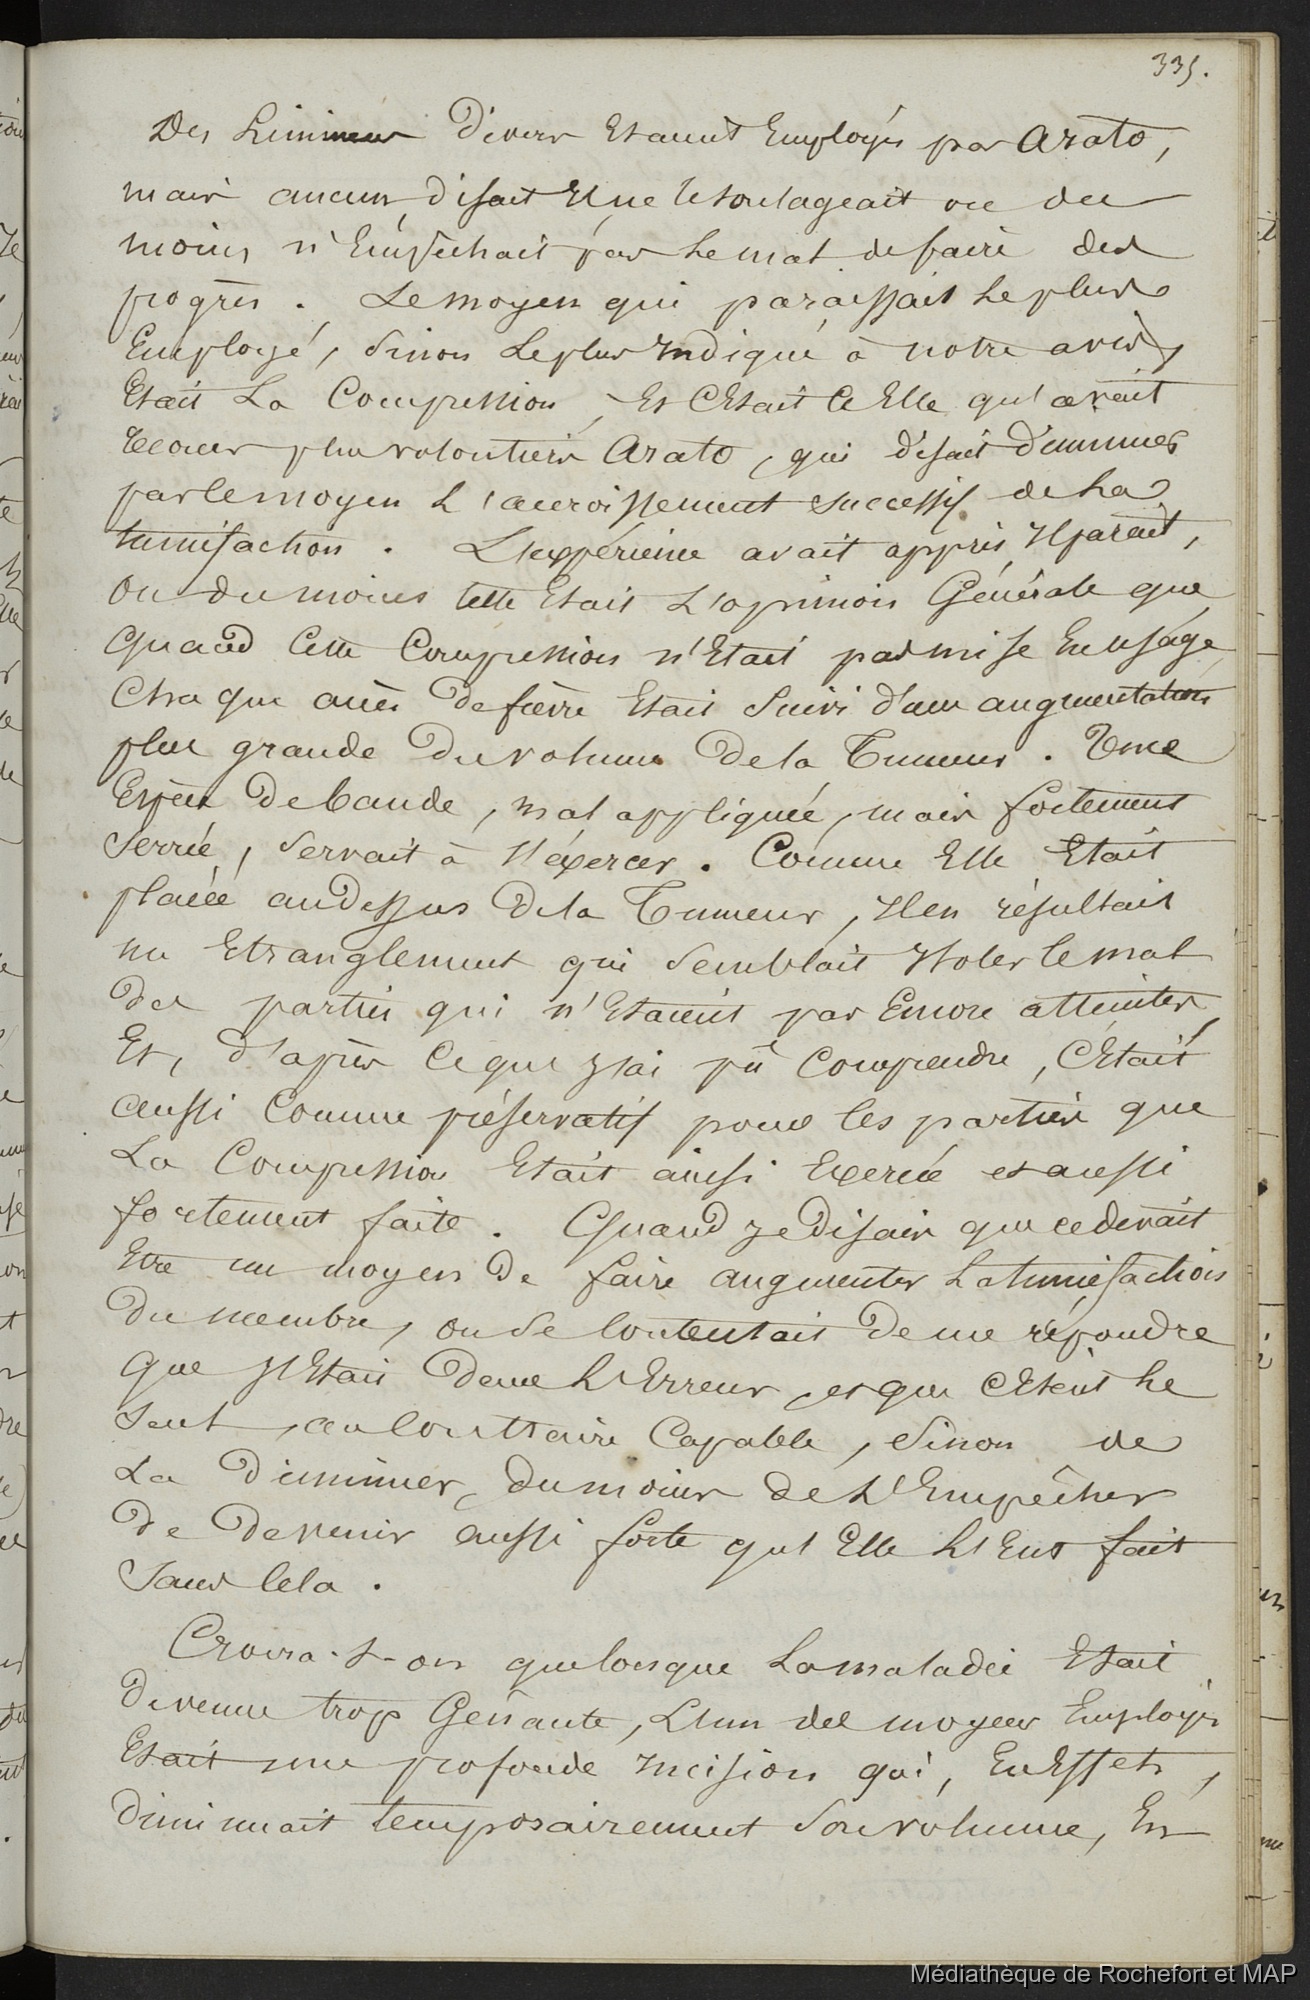 335.
Des Linimens Divers Etaient Employés par Arato,
mais aucun, disait Il ne le soulageait ou du
moins n'Empêchait pas Le mal de faire des
progrès. Le moyen qui paraissait Le plus
Employé, Sinon Le plus Indiqué à notre avis,
Etait La Compression, Et C'Etait à Elle qu'avait
recours plus volontiers Arato, qui disait Diminuer
par le moyen L'accroissement successif de La
tumefaction. L'expérience avait appris, Il parait,
Ou du moins telle Etait L'opinion Générale que
Quand Cette Compression n'Etait pas mise En usage,
Chaque accès De fièvre Etait Suivi d'une augmentation
plus grande Du volume De la Tumeur. Une
Espèce De bande, mal appliquée, mais fortement
Serrée, Servait à l'éxercer. Comme Elle Etait
placée au Dessus De la Tumeur, Il en résultait
un Etranglement qui Semblait Isoler le mal
Des parties qui n'Etaient pas Encore atteintes,
Et, d'après Ce que J'ai pû Comprendre, C'Etait
aussi Comme préservatif pour les parties que
La Compression Etait ainsi Exercée et aussi
fortement faite. Quand Je Disais que ce devait
Etre un moyen De faire augmenter La tumefaction
Du membre, on Se Contentait De me répondre
Que J'Etais Dans L'Erreur, et que C'Etait Le
Seul, au Contraire Capable, Sinon de
La Diminuer, Du moins de L'Empêcher
De Devenir aussi forte qu'Elle L'Eut fait
Sans Cela.
Croira-t-on que lorsque La maladie Etait
Devenue trop Gênante, L'un des moyens Employés
Etait une profonde Incision qui, En Effet,
Diminuait temporairement Son volume, En
Médiathèque de Rochefort et MAP